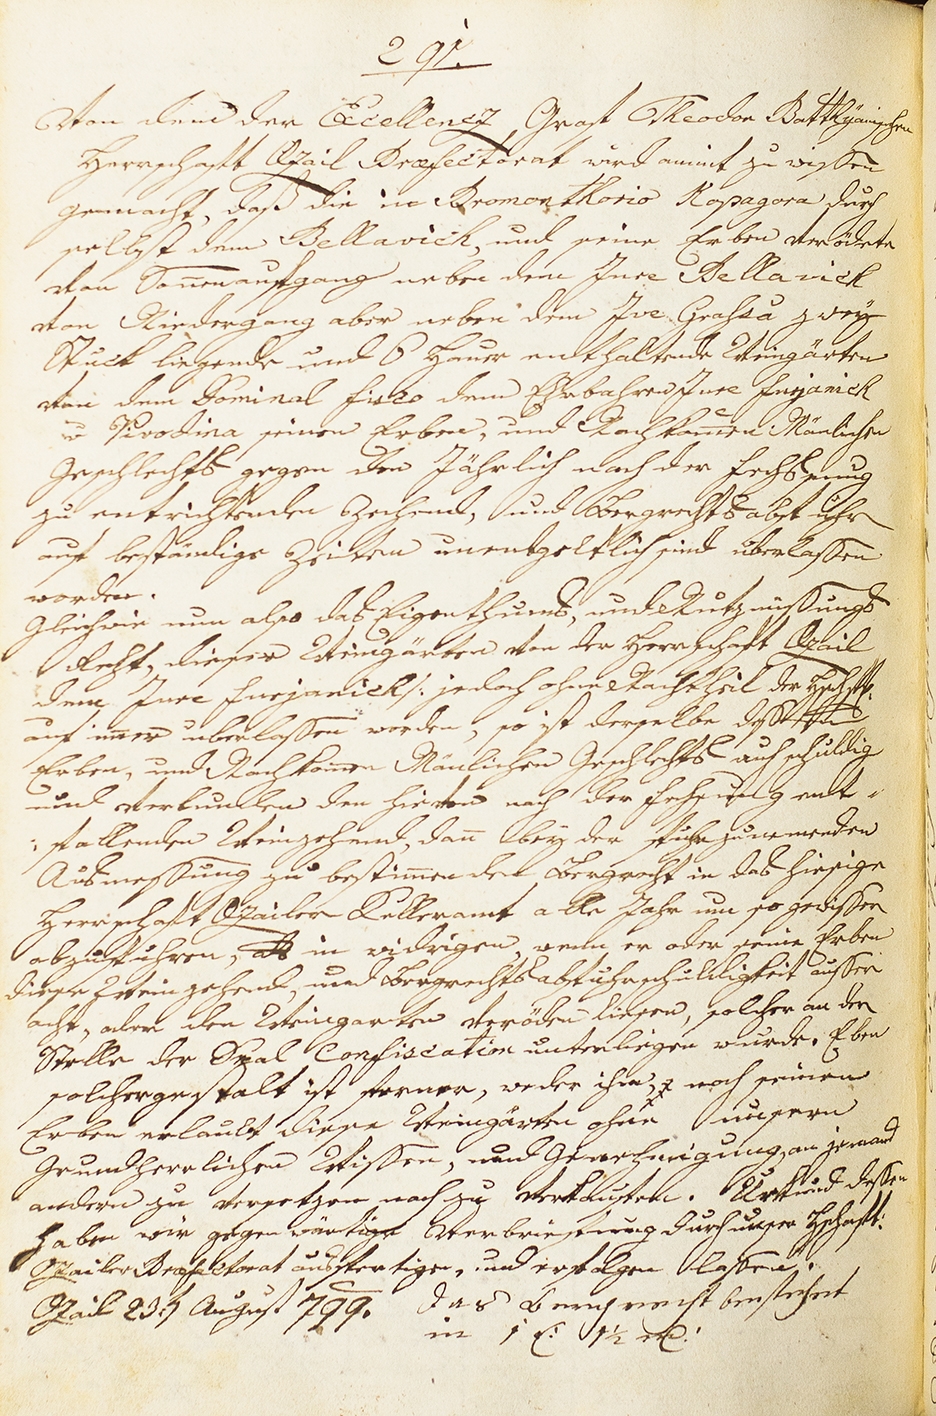 291.
Von dem der Excellenz Graf Theodor Batthyanischen
Herrschaft Ozail Præfectorat wird anmit zu wissen
gemacht, daß die in Promonthorio Kopagora durch
selbst dem Bellavich, und seine Erben verödete
von Sonnenaufgang neben dem Jure Bellavich
von Niedergang aber neben dem Ive Grahsa zwey
Stuck liegende und 6 Hauer enthaltende Weingärten
von dem Dominal Fisco dem Ehrbahren Jure Furjanich
seinen Erben, und Nachkommen Mänlichen
Geschlechts gegen den Jährlich nach der Fechsnung
zu entrichtenden Zechend, und Bergrechts abfuhr
auf beständige Zeiten unentgeltlich sind überlassen
worden.
Gleichwie nun also das Eigenthums, und Nutznüssungs
Recht, dieser Weingärten von der Herrschaft Ozail
dem Jure Furjanich /: jedoch ohne Nachtheil der Hschft:
auf immer uberlassen worden, so ist derselbe dessen
Erben, und Nachkommen Mänlichen Geschlechts auch schuldig
und verbunden den hievon nach der Fechsung ent-
:fallenden Weinzehend, dann bey der fürzunemenden
Ausmessung zu bestimmenden Bergrecht in das hiesige
Herrschaft Ozailer Kelleramt alle Jahr um so gewisser
abzuführen, als in widrigen, wenn er oder seine Erben
diese Weinzehend, und Bergrechts abfuhrschuldigkeit ausser
acht, oder den Weingarten veröden liesen, solcher an der
Stelle der Confiscation unterliegen wurde. Eben
solchergestalt ist ferner, weder ihm, noch seinen
Erben erlaubt diese Weingärten ohne unsern
Grundherrlichen Wissen, und Genehmigung, an jemand
andern zu versetzen noch zu verkaufen. Urkund dessen
haben wir gegenwärtige Verbriefung durch unser Hschaft:
Ozailer Præfectorat ausfertigen, und erfolgen lassen.
Ozail 23: August 799. Das Bergrecht bestehet
in 1 1½